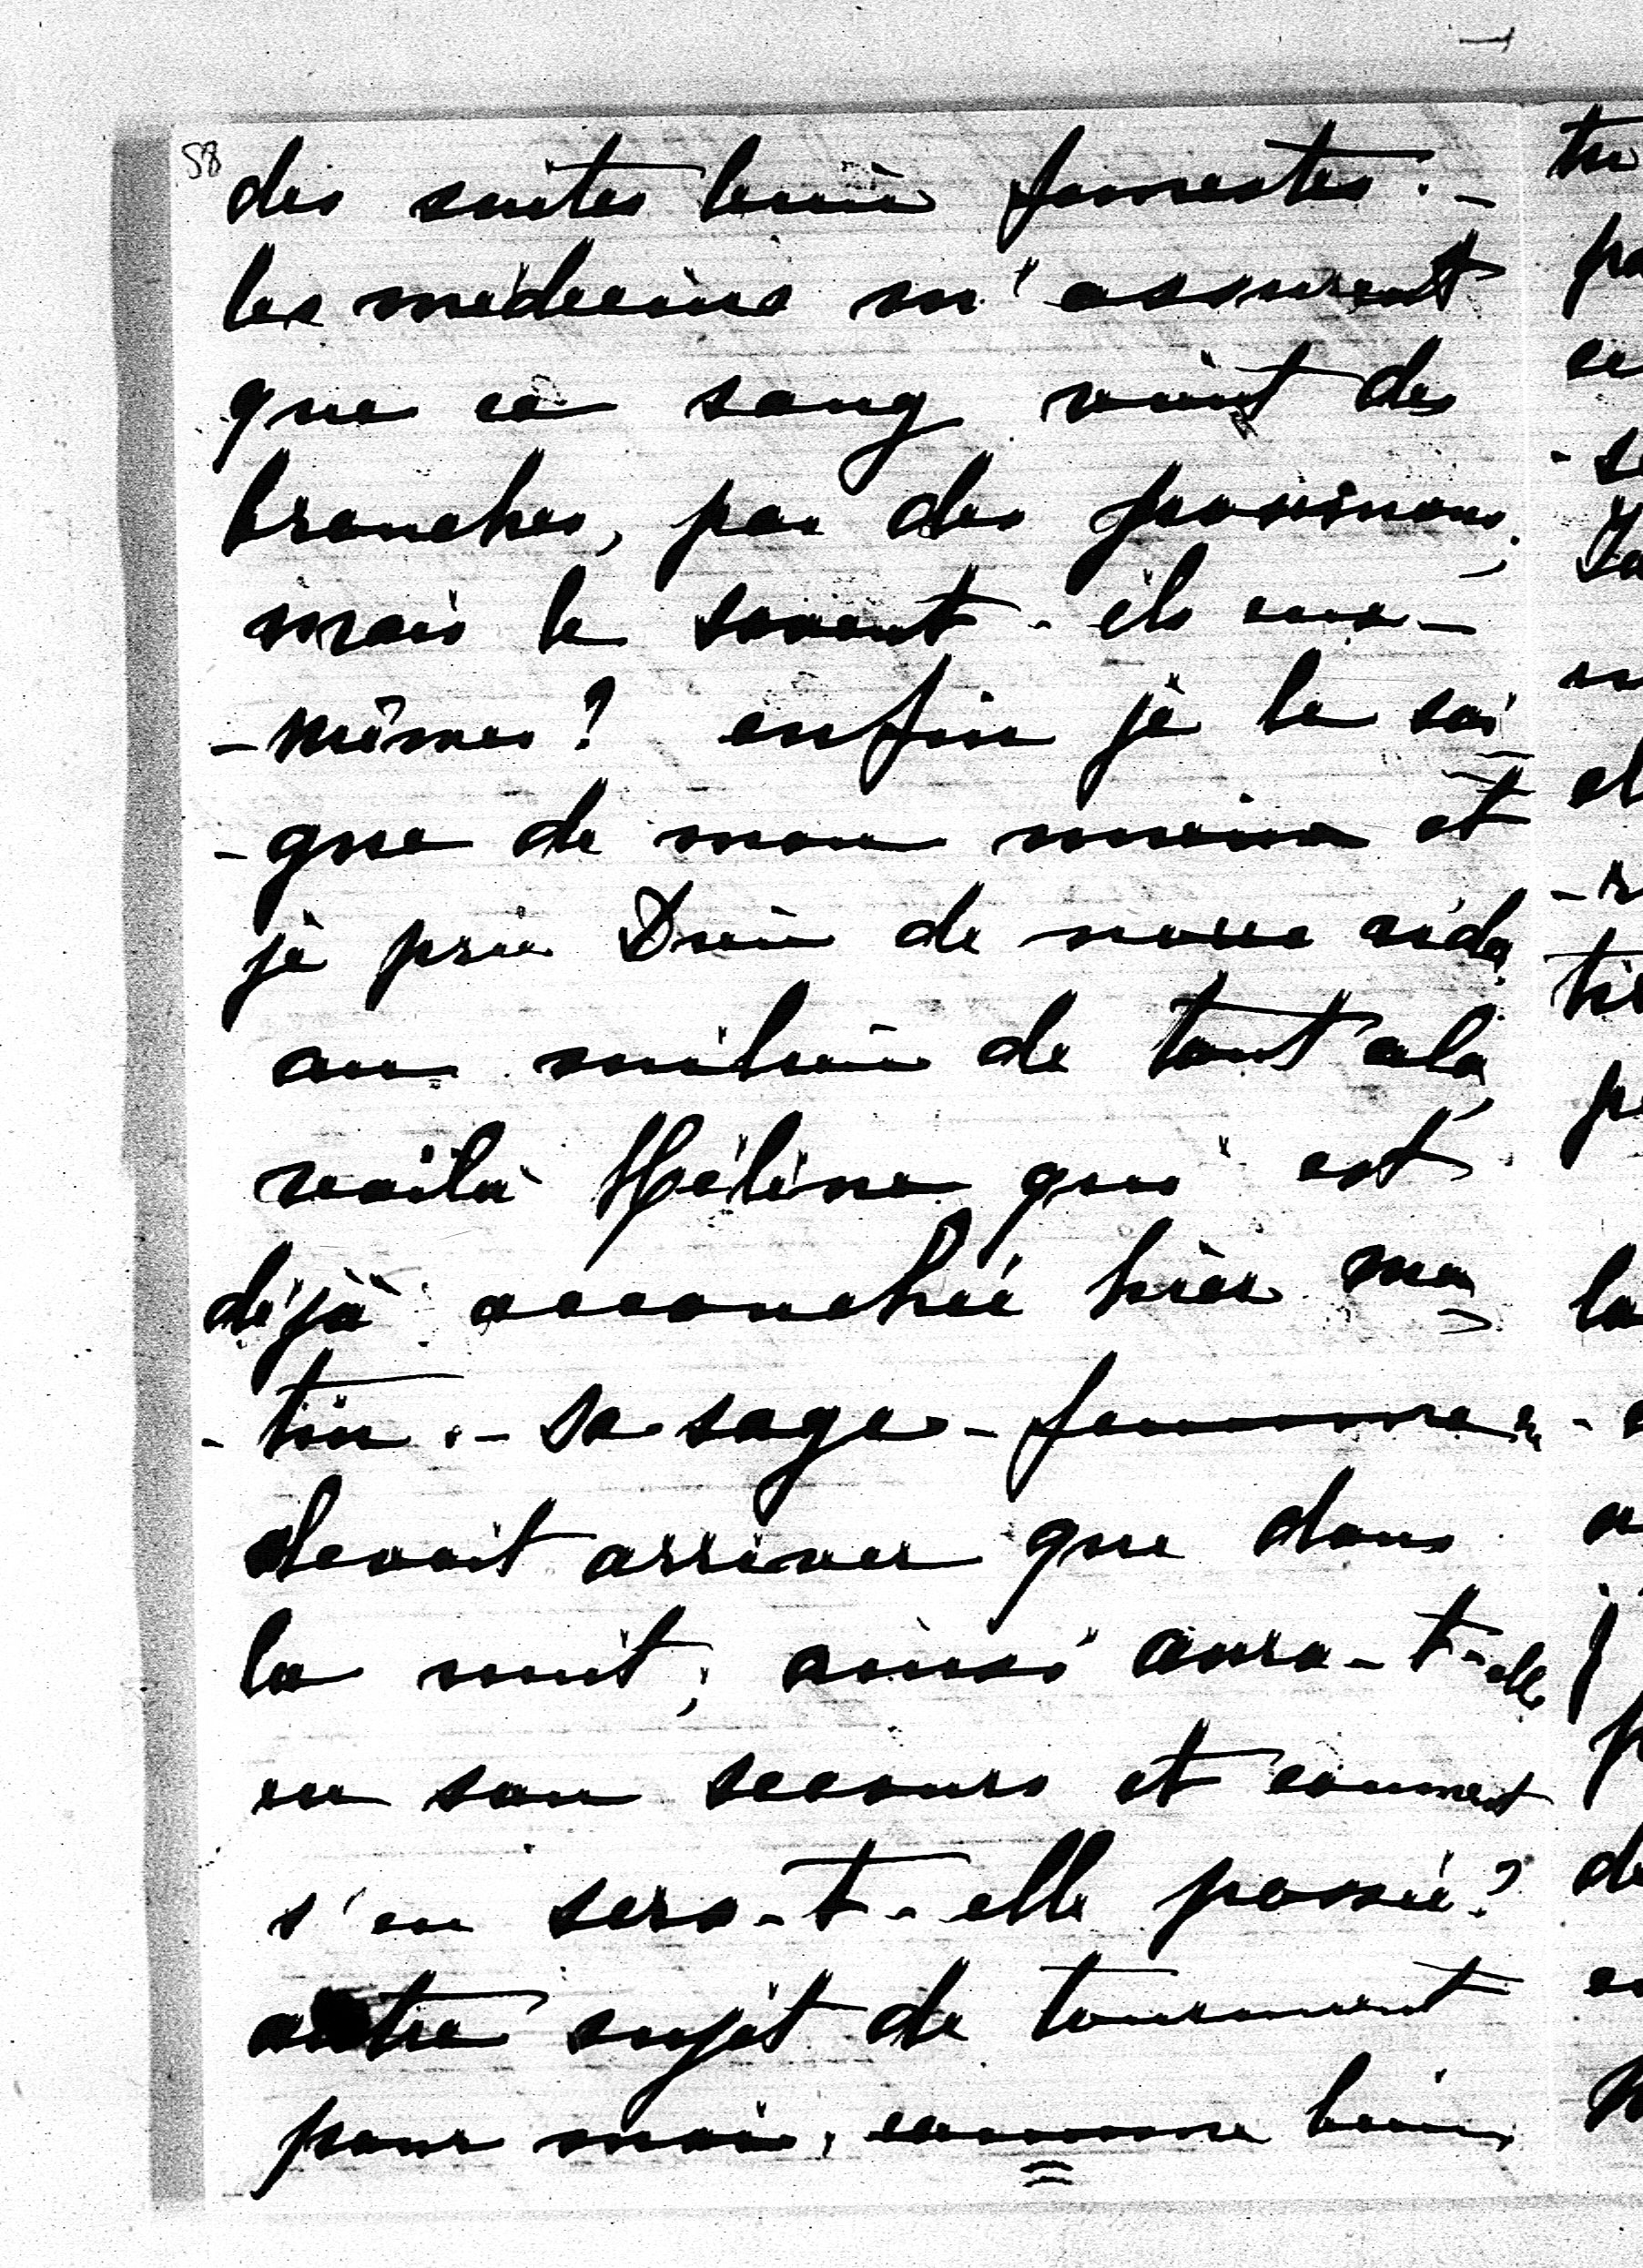 58
des suites bien funestes. -
les médecins m'assurent
que ce sang vient des
bronches, pas des poumons,
mais le savent-ils eux-
-mêmes? enfin je le soi-
-gne de mon mieux et
je prie Dieu de nous aider,
au milieu de tout cela,
voilà Hélène qui est
déjà accouchée hier ma-
-tin. - Sa sage-femme ne
devait arriver que dans
la nuit; ainsi aura-t-elle
eu son secours et comment
s'en sera-t-elle passée?
autre sujet de tourment
pour moi, comme bien